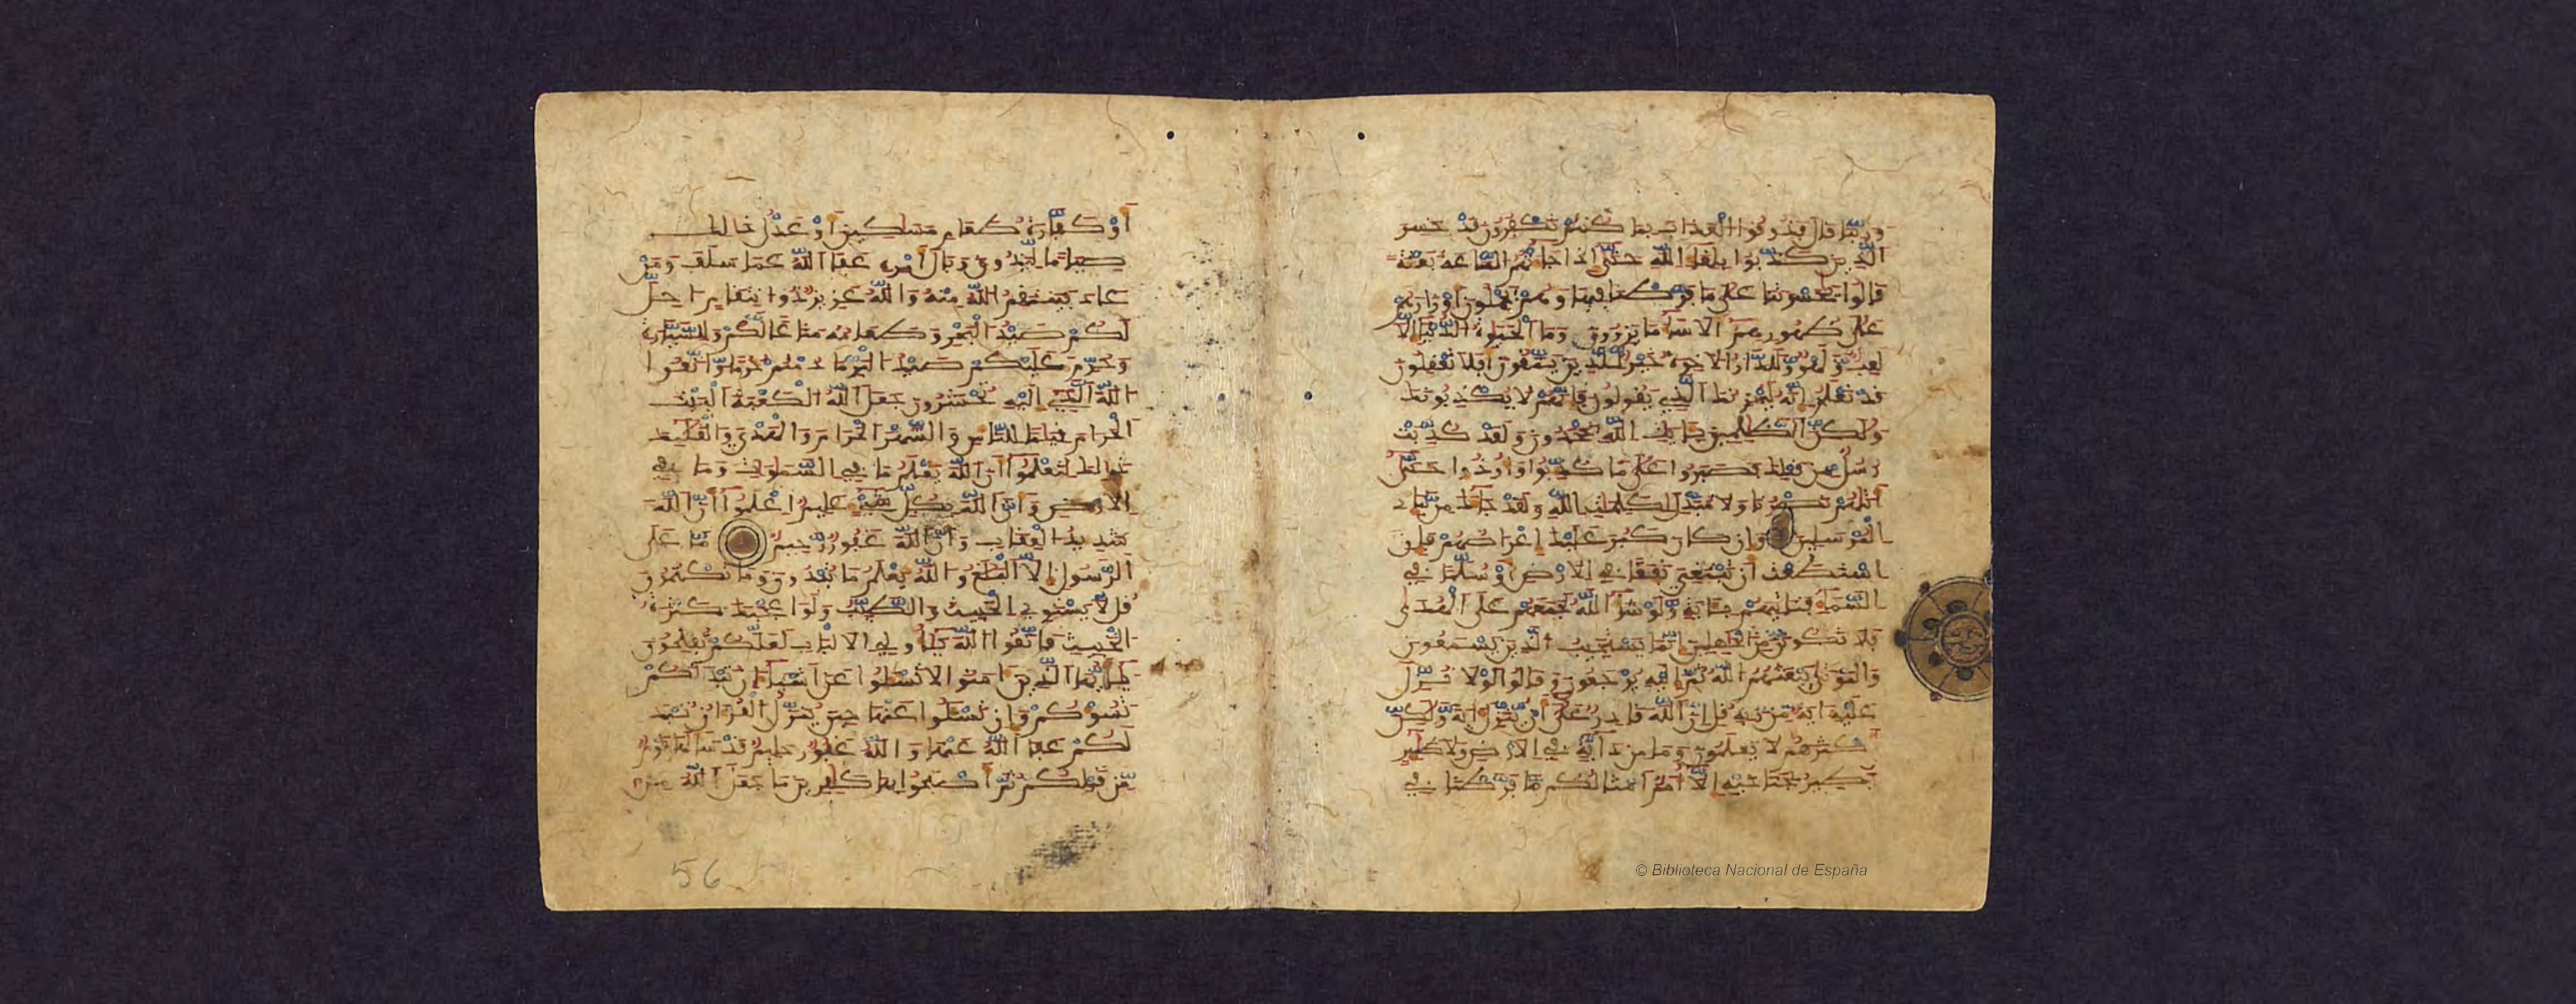 وربنا قال فذوقوا العذاب بما كنتم تكفرون قد خسر
الذين كذبوا بلقاء الله حتى اذا جاءتهم الساعة بغتة
قالوا يحسرتنا على ما فرطنا فيها وهم يحملون أوزارهم
على ظهورهم الا ساء ما يزرون وما الحيوة الدنيا الا
لعب ولهو وللدار الاخرة خير للذين يتقون أفلا تعقلون
قد نعلم إنه ليحزنك الذي يقولون فإنهم لا يكذبونك
ولكن الظلمين بايت الله يجحدون ولقد كذبت
رسل من قبلك فصبروا على ما كذبوا وأوذوا حتى
أتاهم نصرنا ولا مبدل لكلمات الله ولقد جاءك من نبإ
المرسلين وإن كان كبر عليك إعراضهم فإن
استطعت أن تبتغي نفقا في الأرض أو سلما في
السماء فتاتيهم بئاية ولو شاء الله لجمعهم على الهدى
فلا تكونن من الجهلين إنما يستجيب الذين يسمعون
والموتى يبعثهم الله ثم إليه يرجعون وقالوا لولا نزل
عليه ءاية من ربه قل إن الله قادر على أن ينزل ءاية ولكن
أكثرهم لا يعلمون وما من دابة في الأرض ولا طير
يطير بجناحيه إلا أمم أمثالكم ما فرطنا في
أو كفارة طعام مساكين أو عدل ذالك
صياما ليذوق وبال أمره عفا الله عما سلف ومن
عاد فينتقم الله منه والله عزيز ذو انتقام احل
لكم صيد البحر وطعامه متاعا لكم وللسيارة
وحرم عليكم صيد البر ما دمتم حرما واتقوا
الله الذي إليه تحشرون جعل الله الكعبة البيت
الحرام قياما للناس والشهر الحرام والهدي والقلئد
ذالك لتعلموا أن الله يعلم ما في السموت وما في
الأرض وأن الله بكل شيء عليم اعلموا أن الله
شديد العقاب وأن الله غفور رحيم ما على
الرسول إلا البلغ والله يعلم ما تبدون وما تكتمون
قل لا يستوي الخبيث والطيب ولو اعجبك كثرة
الخبيث فاتقوا الله يأولي الالباب لعلكم تفلحون
يأيها الذين ءامنوا لا تسئلوا عن أشياء إن تبد لكم
تسؤكم وإن تسئلوا عنها حين ينزل القرءان تبد
لكم عفا الله عنها والله غفور حليم قد سألها قوم
من قبلكم ثم أصبحوا بها كفرين ما جعل الله من
56
© Biblioteca Nacional de España